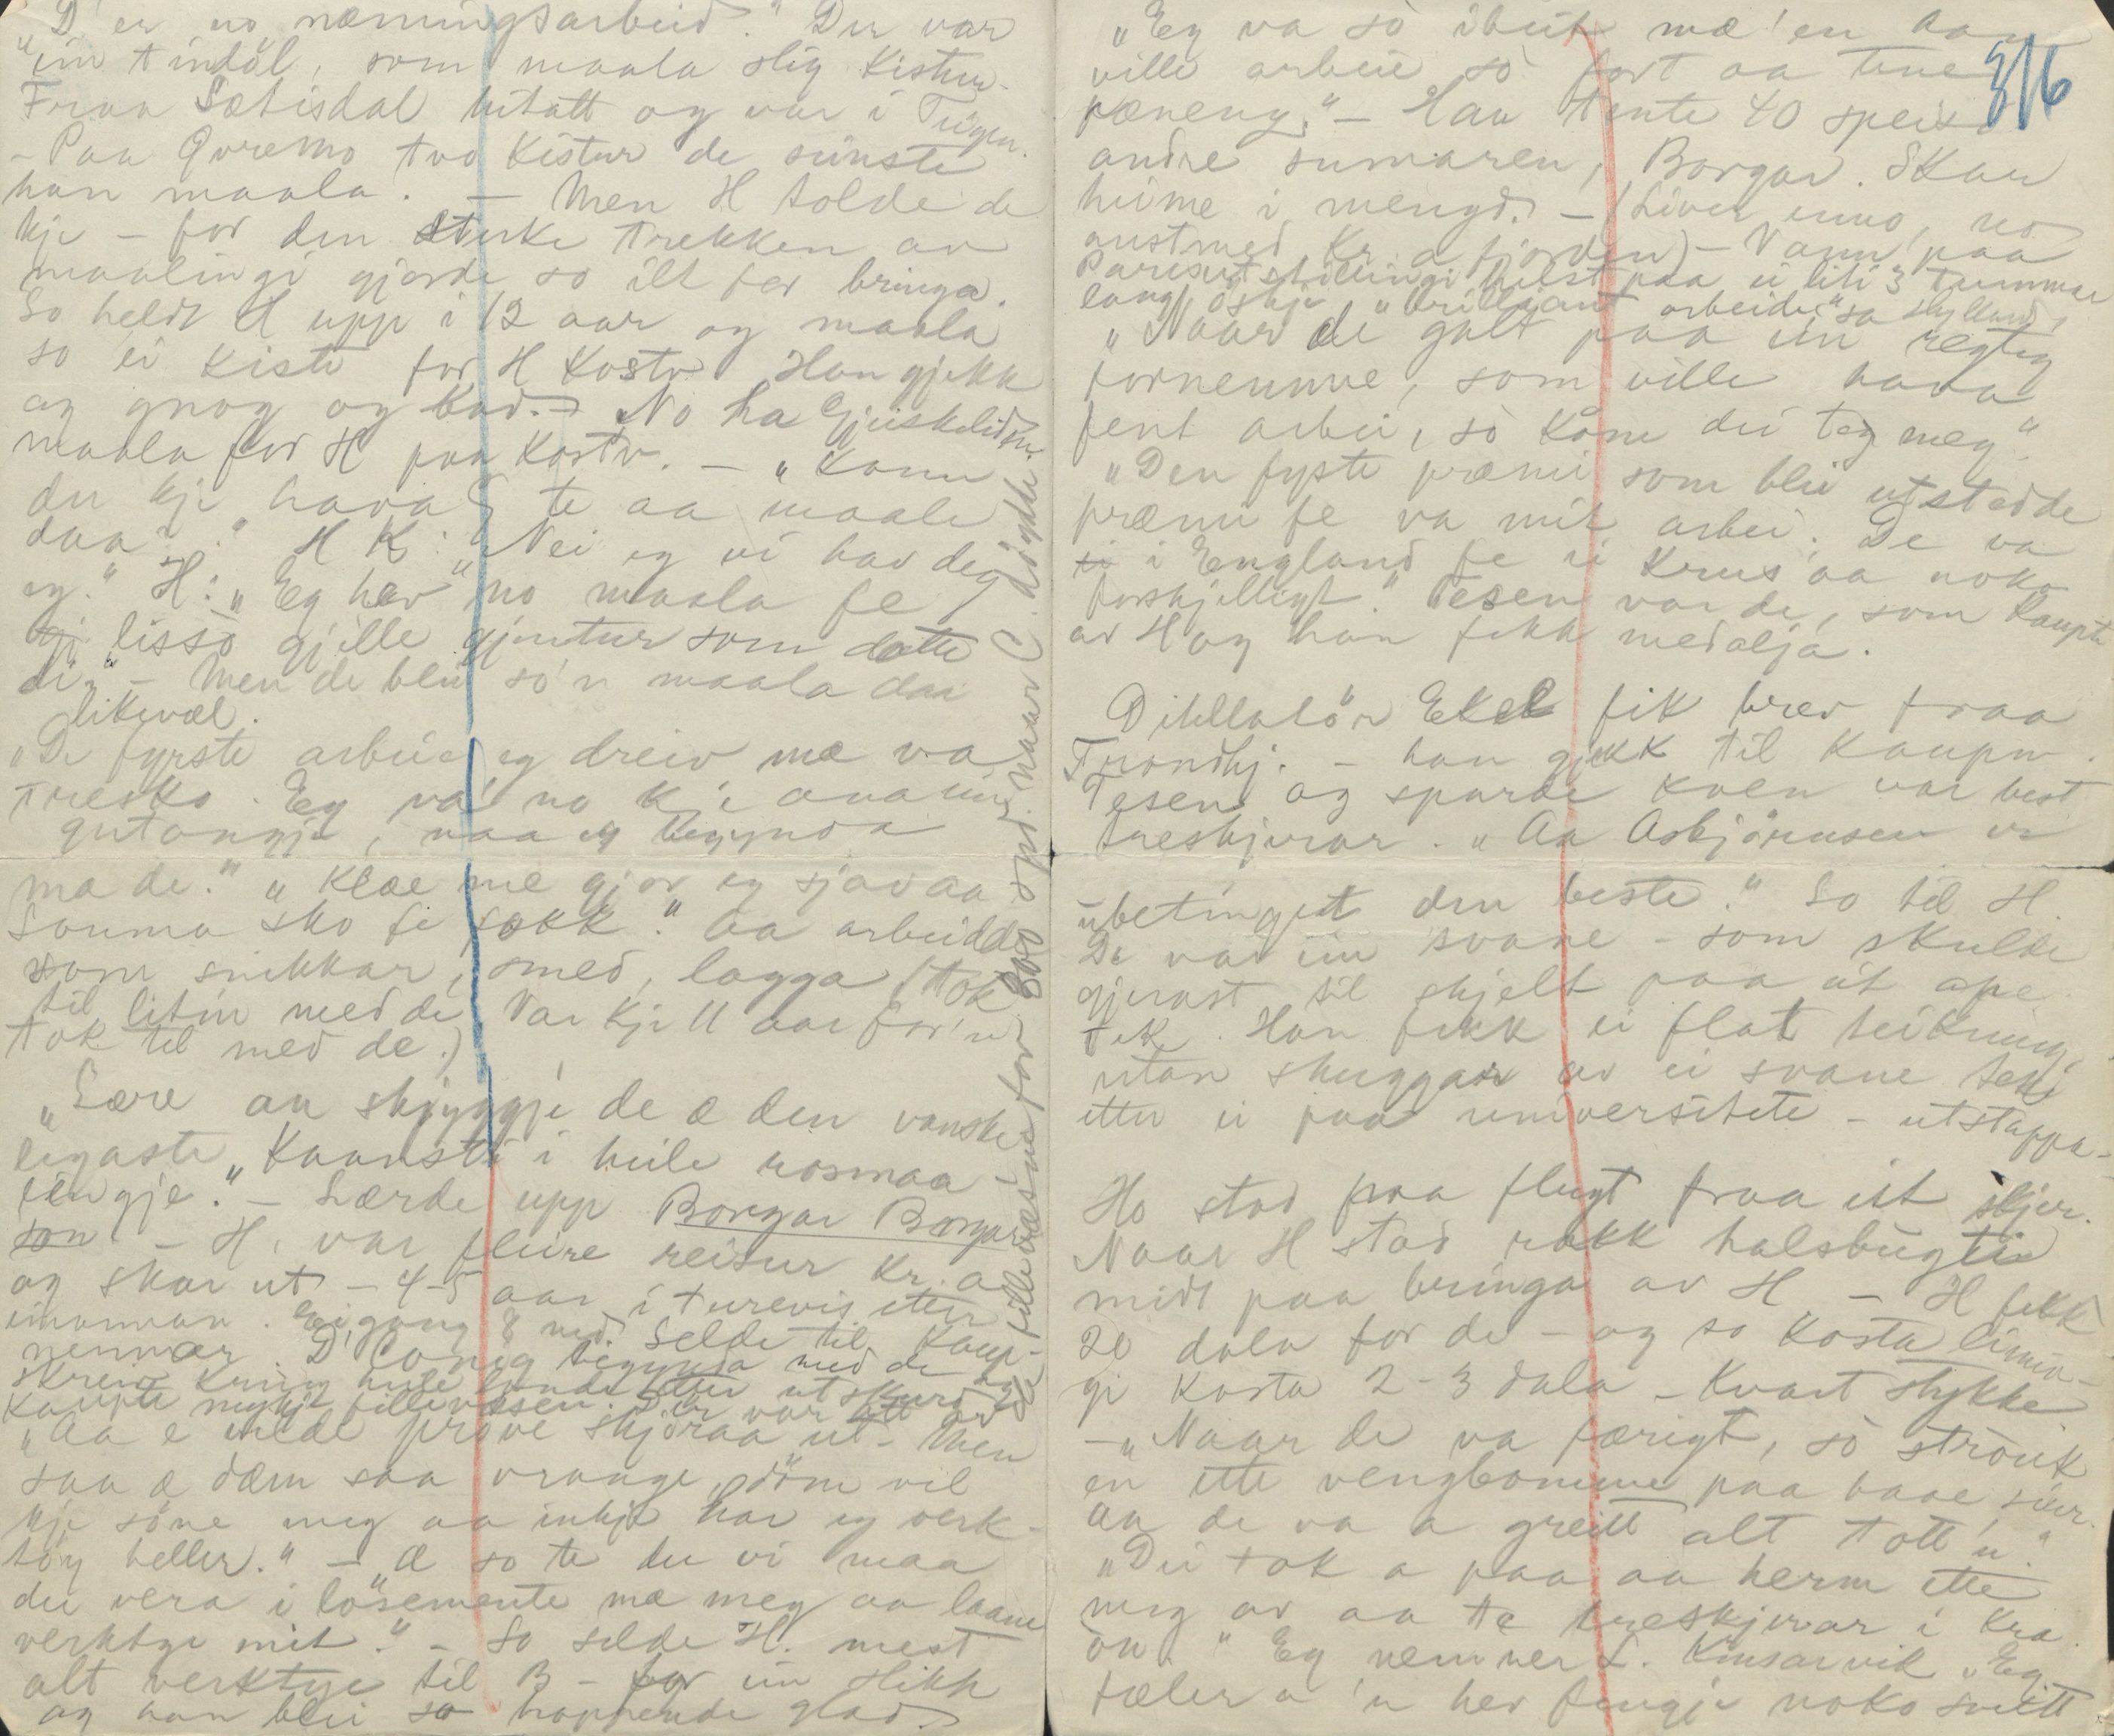 "D'er no næmingsarbeid." Der var
ein tindöl, som maala slig kistur.
Fraa Sætisdal hitatt og var i
– Paa Qvremo tvo kistur de sinste
han maala. – Men H tolde de
kje – for den sterke trekken av
maalingi gjorde so ilt for bringa.
So heldt H upp i 12 aar og maala
so ei kiste for H Kostv. Han gjekk
og gnog og bad. – No ha
maala for H paa Kostv. – "Kann
du kje hava te aa maale
daa?" H K: "Nei eg vi hav deg
eg." H: "Eg hev no maala fe
lisso gjille gjentur som dotte
di." – Men de blei so'n maala daa
likevæl.
"De fyrste arbeie eg dreiv mæ va
tresko. Eg va no kje ana
gutongje, naa eg begynda
ma de." "Klæe me gjor eg sjav aa
Sauma sko fe folk." Aa arbeidde
som snikkar, smed, lagga (tok
til litin med di Var kje 11 aar for'n
tok til med de.)
"Lære an skjyggje de æ den vanske
legaste "Kaansti i heile rosmaa-
lingje." – Lærde upp Borgar Borgar
son – H. var fleire reisur Kr.a
og skar ut – 4-5 aar i turevis etter
einannan. Eigong 8 med. Selde til kaup-
mennar. D' Conig begynda med de og
skreiv kring heile lande etter utskurd og
kaupte mykji fillevæsen. Der var alt
"Aa e vilde prøve skjöraa ut – Men
saa æ dæm saa vraange, döm vil
kje söne meg aa inkje har eg verk-
töy heller." – "Æ so te du vi maa
du vera i lösemente mæ meg aa laane
verktye mit." – So selde H. mest
alt verktye til B – for ein slikk
og han blei so hoppende glad.
de fillevæsene for 800 spd. naar C. döydde
316
"Eg va so ibeit mæ'en han
ville arbeie so fort aa tene
pæneng." – Han tente 40 speisd
andre sumaren, Borgar. Skar
heime i mengd. – (Liver enno, no
austmed Kr.a fjorden) – Vann paa
Parisutstillingi helst paa ei liti 3 tummar
lang öskje "brilliant arbeide" sa
"Naar de galt paa ein regteg
fornemme, som ville hava
fent arbei, so kåm dei teg meg."
"Den fyste præmi som blei utstedde
præmi fe va mit arbei. De va
i England fe ei krus aa noko
forskjelligt." Tesen var de, som kaupte
av H og han fekk medalja.
Dihllatör Ekel fik brev fraa
Trondhj. – han gjekk til Kaupm.
Tesen og spurde kven var best
treskjerar. "Aa Asbjörnsen er
ubetinget den beste." So til H.
De var ein svane – som skulde
gjerast til skjelt paa eit apo-
tek. Han fekk ei flat teikning
utan skuggar av ei svane
etter ei paa universitete – utstappa –
Ho stod paa flugt fraa eit skjer.
Naar H stod rakk halsbugtin
midt paa bringa av H. – H fekk
20 dala for de – og so kosta limin-
gi kosta 2-3 dala – Kvart stykke
– "Naar de va færigt, so strouk
en ette vengbommne paa baae siur.
Aa de va a greitt alt tott'n."
"Dei tok a paa aa herm ette
meg av aa te treskjerar i Kra.
ön." Eg nemner L. Kinsarvik "Eg
tæler a'n hev fengje noko snitt